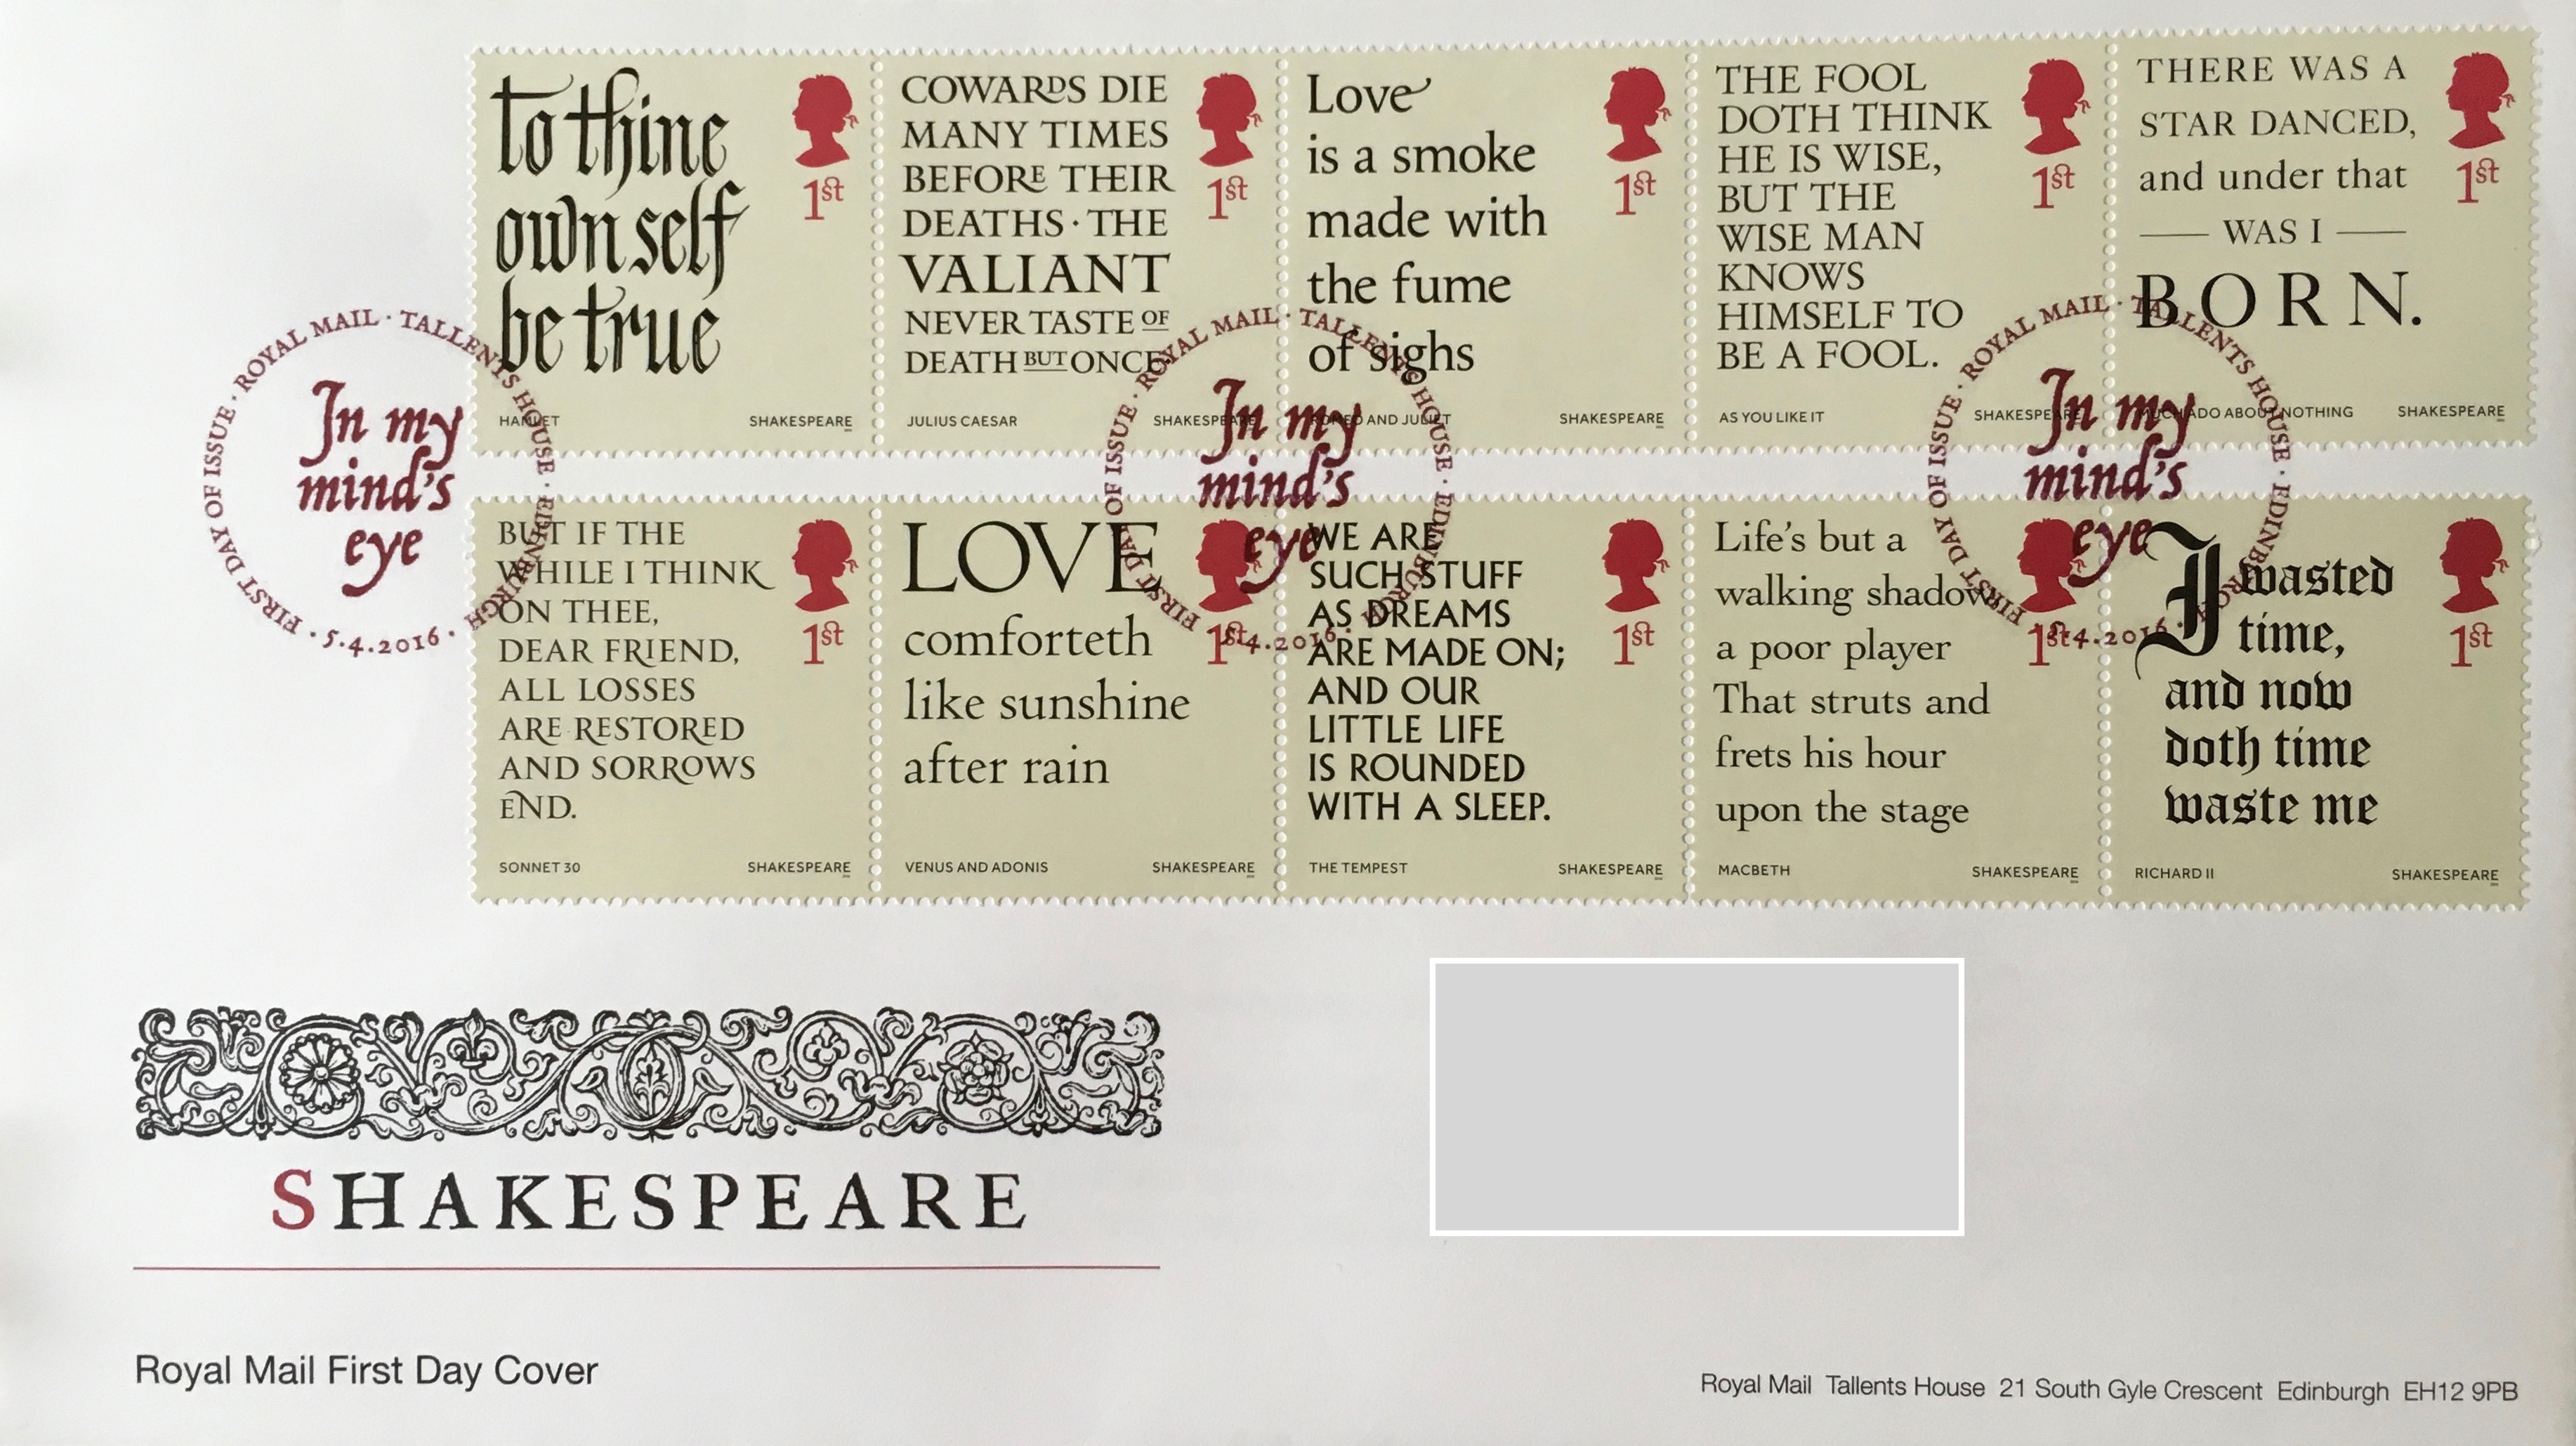 to thine
own self
be true
1st
HAMLET
SHAKESPEARE
COWARDS DIE
MANY TIMES
BEFORE THEIR
DEATHS · THE
VALIANT
NEVER TASTE OF
DEATH BUT ONCE
1st
JULIUS CAESAR
SHAKESPEARE
Love
is a smoke
made with
the fume
of sighs
1st
ROMEO AND JULIET
SHAKESPEARE
THE FOOL
DOTH THINK
HE IS WISE,
BUT THE
WISE MAN
KNOWS
HIMSELF TO
BE A FOOL.
1st
AS YOU LIKE IT
SHAKESPEARE
THERE WAS A
STAR DANCED,
and under that
WAS I
BORN.
1st
MUCH ADO ABOUT NOTHING
SHAKESPEARE
FIRST DAY OF ISSUE · ROYAL MAIL · TALLENTS HOUSE · EDINBURGH · 5.4.2016 ·
In my
mind's
eye
FIRST DAY OF ISSUE · ROYAL MAIL · TALLENTS HOUSE · EDINBURGH · 5.4.2016 ·
In my
mind's
eye
FIRST DAY OF ISSUE · ROYAL MAIL · TALLENTS HOUSE · EDINBURGH · 5.4.2016 ·
In my
mind's
eye
BUT IF THE
WHILE I THINK
ON THEE,
DEAR FRIEND,
ALL LOSSES
ARE RESTORED
AND SORROWS
END.
1st
SONNET 30
SHAKESPEARE
LOVE
comforteth
like sunshine
after rain
1st
VENUS AND ADONIS
SHAKESPEARE
WE ARE
SUCH STUFF
AS DREAMS
ARE MADE ON;
AND OUR
LITTLE LIFE
IS ROUNDED
WITH A SLEEP.
1st
THE TEMPEST
SHAKESPEARE
Life's but a
walking shadow
a poor player
That struts and
frets his hour
upon the stage
1st
MACBETH
SHAKESPEARE
I wasted
time,
and now
doth time
waste me
1st
RICHARD II
SHAKESPEARE
SHAKESPEARE
Royal Mail First Day Cover
Royal Mail Tallents House 21 South Gyle Crescent Edinburgh EH12 9PB